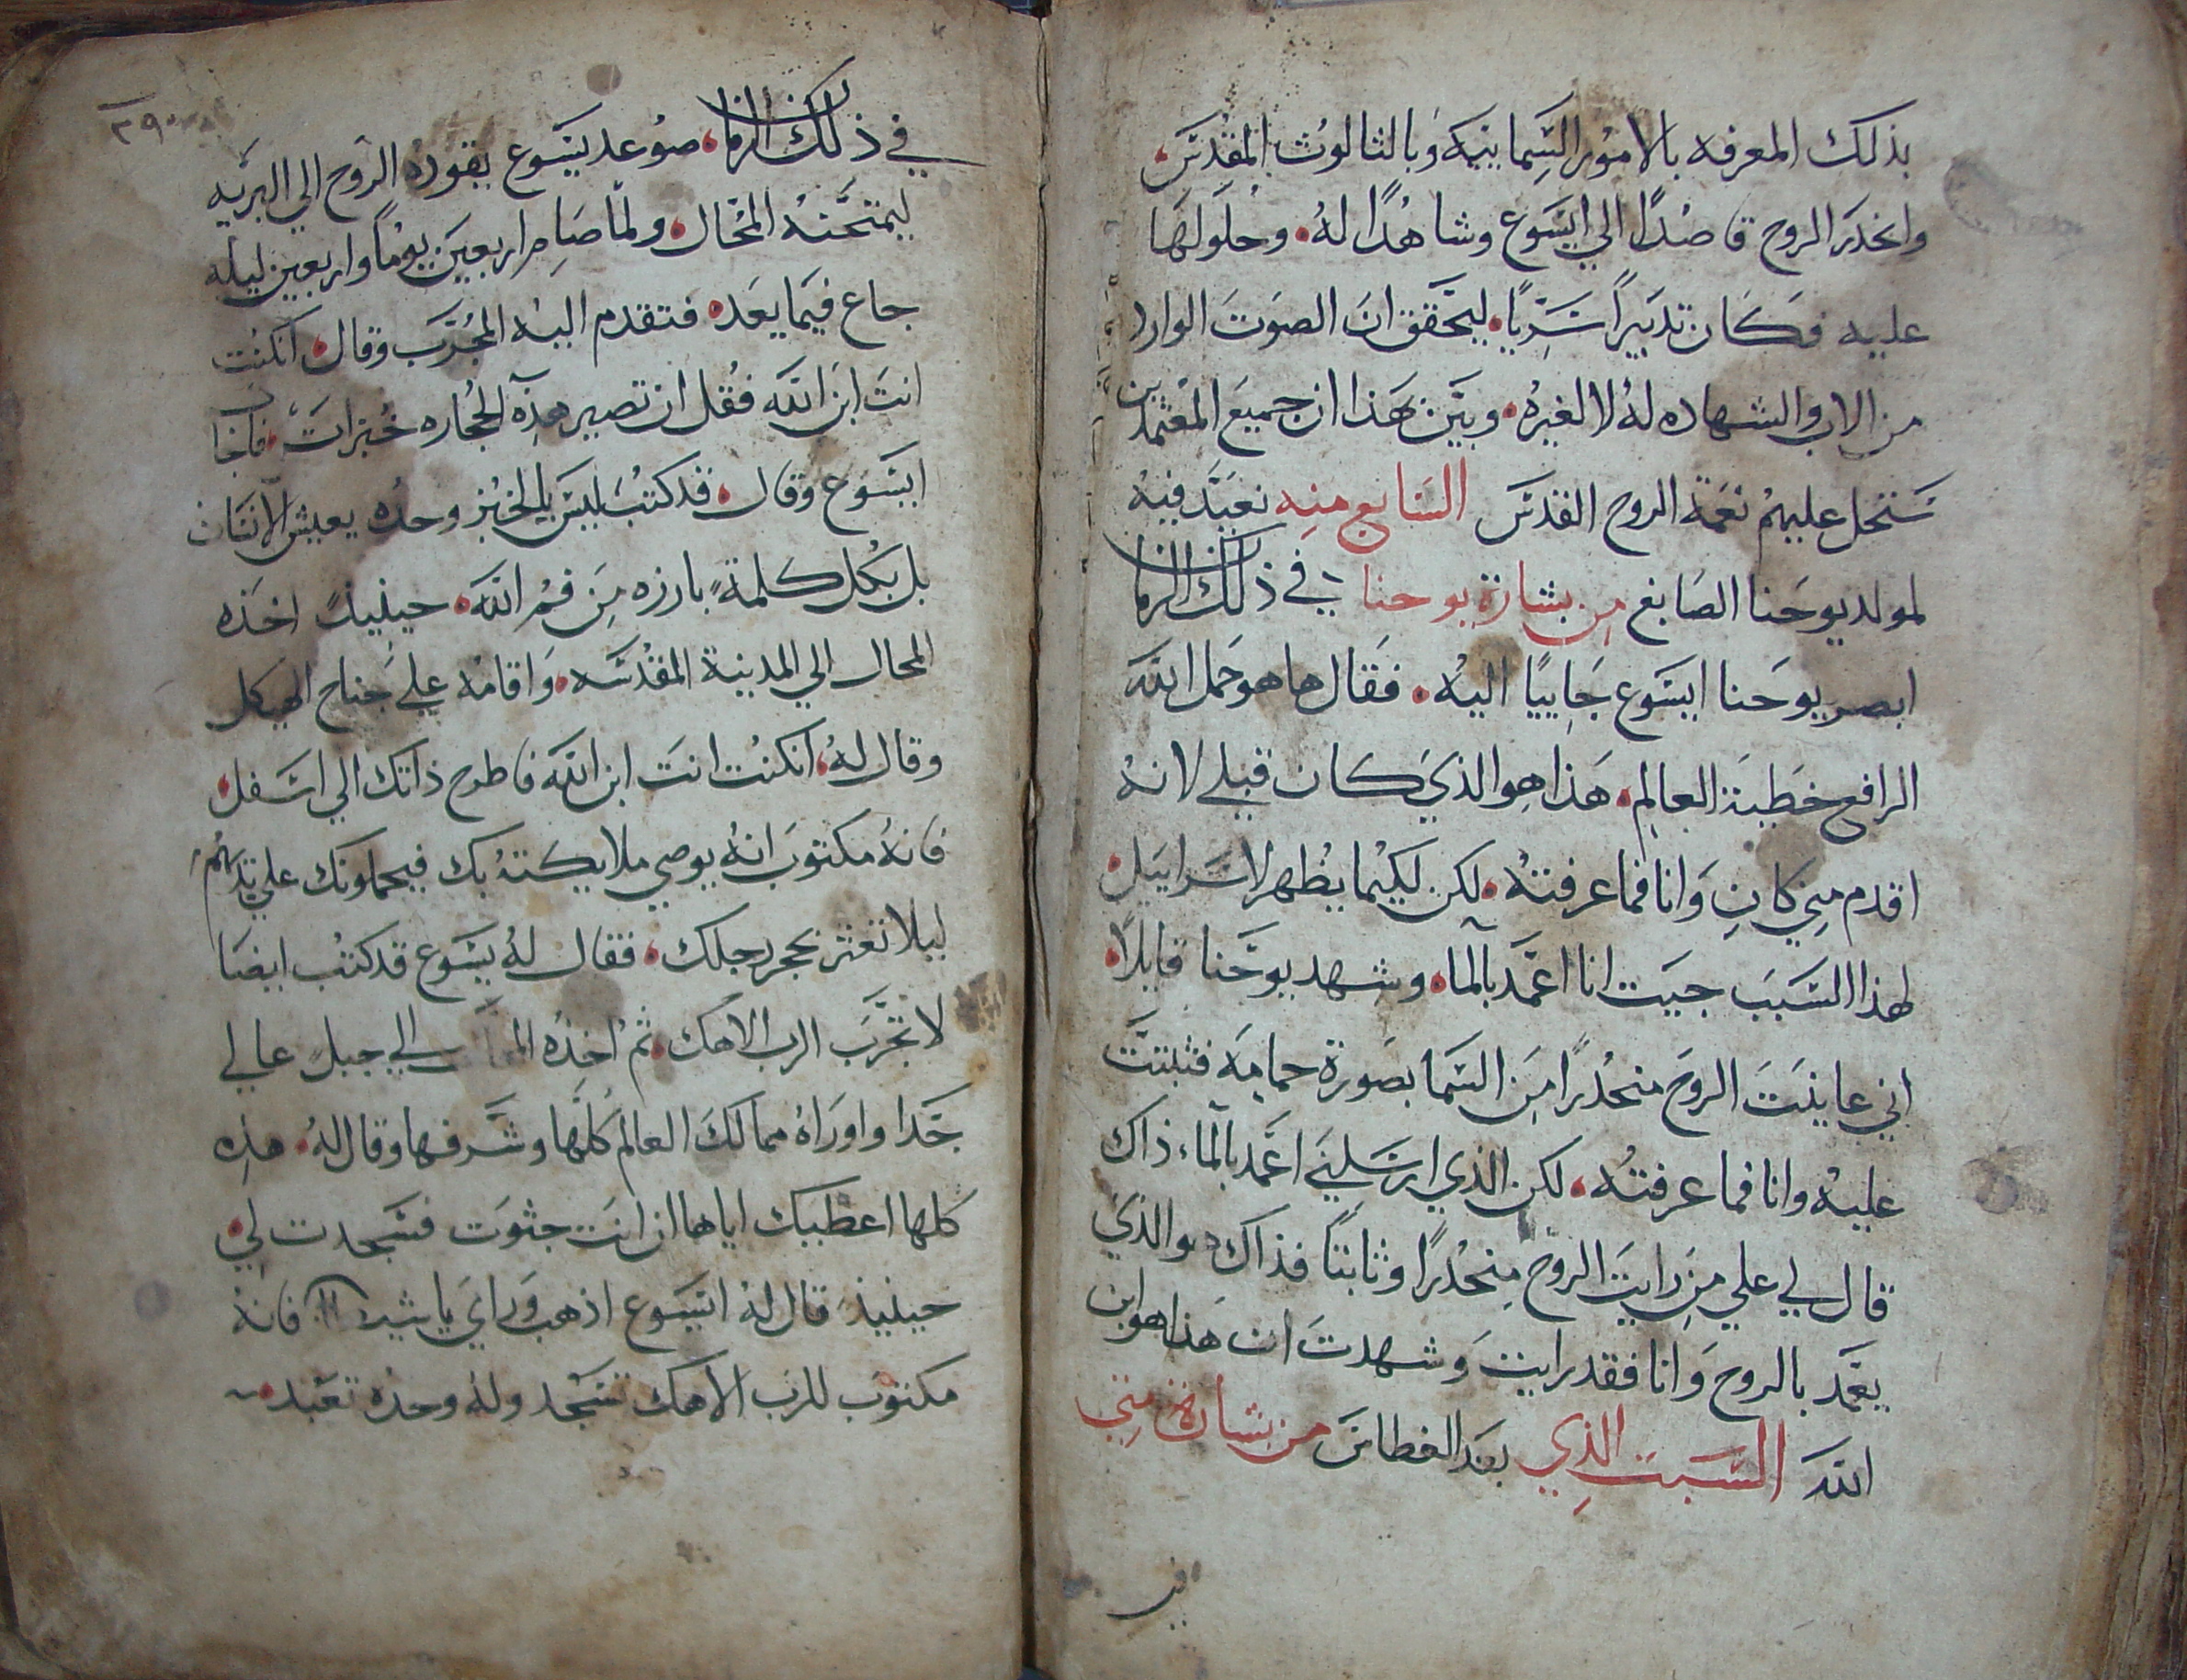 بذلك المعرفه بالامور السمايييه وبالثالوث المقدس
وانحدر الروح قاصدًا الي ايسوع وشاهدًا له وحلولها
عليه فكان تدبيراً سريًا ليحقق ان الصوت الوارد
من الاب والشهاده له لا لغيره وبين بهذا ان جميع المعتمدين
ستحل عليهم نعمة الروح القدس السابع منه نعيد فيه
لمولد يوحنا الصابغ من بشارة يوحنا في ذلك الزمان
ابصر يوحنا ايسوع جاييًا اليه فقال ها هو حمل الله
الرافع خطية العالم هذا هو الذي كان قبلي لانه
اقدم مني كان وانا فما عرفته لكن لكيما يظهر لاسراييل
لهذا السبب جيت انا اعمد بالما وشهد يوحنا قايلاً
اني عاينت الروح منحدرًا من السما بصورة حمامه فثبتت
عليه وانا فما عرفته لكن الذي ارسلني اعمد بالماء ذاك
قال لي علي من رايت الروح منحدرًا وثابتًا فذاك هو الذي
يعمد بالروح وانا فقد رايت وشهدت ان هذا هو ابن
الله السبت الذي بعد الغطاس من بشارة متي
في
٢٩٠
في ذلك الزمان صوعد يسوع يقوده الروح الي البريه
ليمتحنه المحال ولما صام اربعين يومًا واربعين ليله
جاع فيما بعده فتقدم اليه المجرب وقال انكنت
انت ابن الله فقل ان تصير هذه الحجاره خبزات فاجاب
ايسوع وقال قد كتب ليس بالخبز وحده يعيش الانسان
بل بكل كلمة بارزه من فم الله حينيذ اخذه
المحال الي المدينة المقدسه واقامه علي جناح الهيكل
وقال له انكنت انت ابن الله فاطرح ذاتك الي اسفل
فانه مكتوب انه يوصي ملايكته بك فيحملونك علي يديهم
ليلا تعثر بحجر رجلك فقال له يسوع قد كتب ايضا
لا تجرب الرب الاهك ثم اخذه الي جبل عالي
جدا واوراه ممالك العالم كلها وشرفها وقال له هذه
كلها اعطيك اياها ان انت جثوت فسجدت لي
حينيذ قال له ايسوع اذهب وراي يا فانه
مكتوب للرب الاهك تسجد وله وحده تعبد